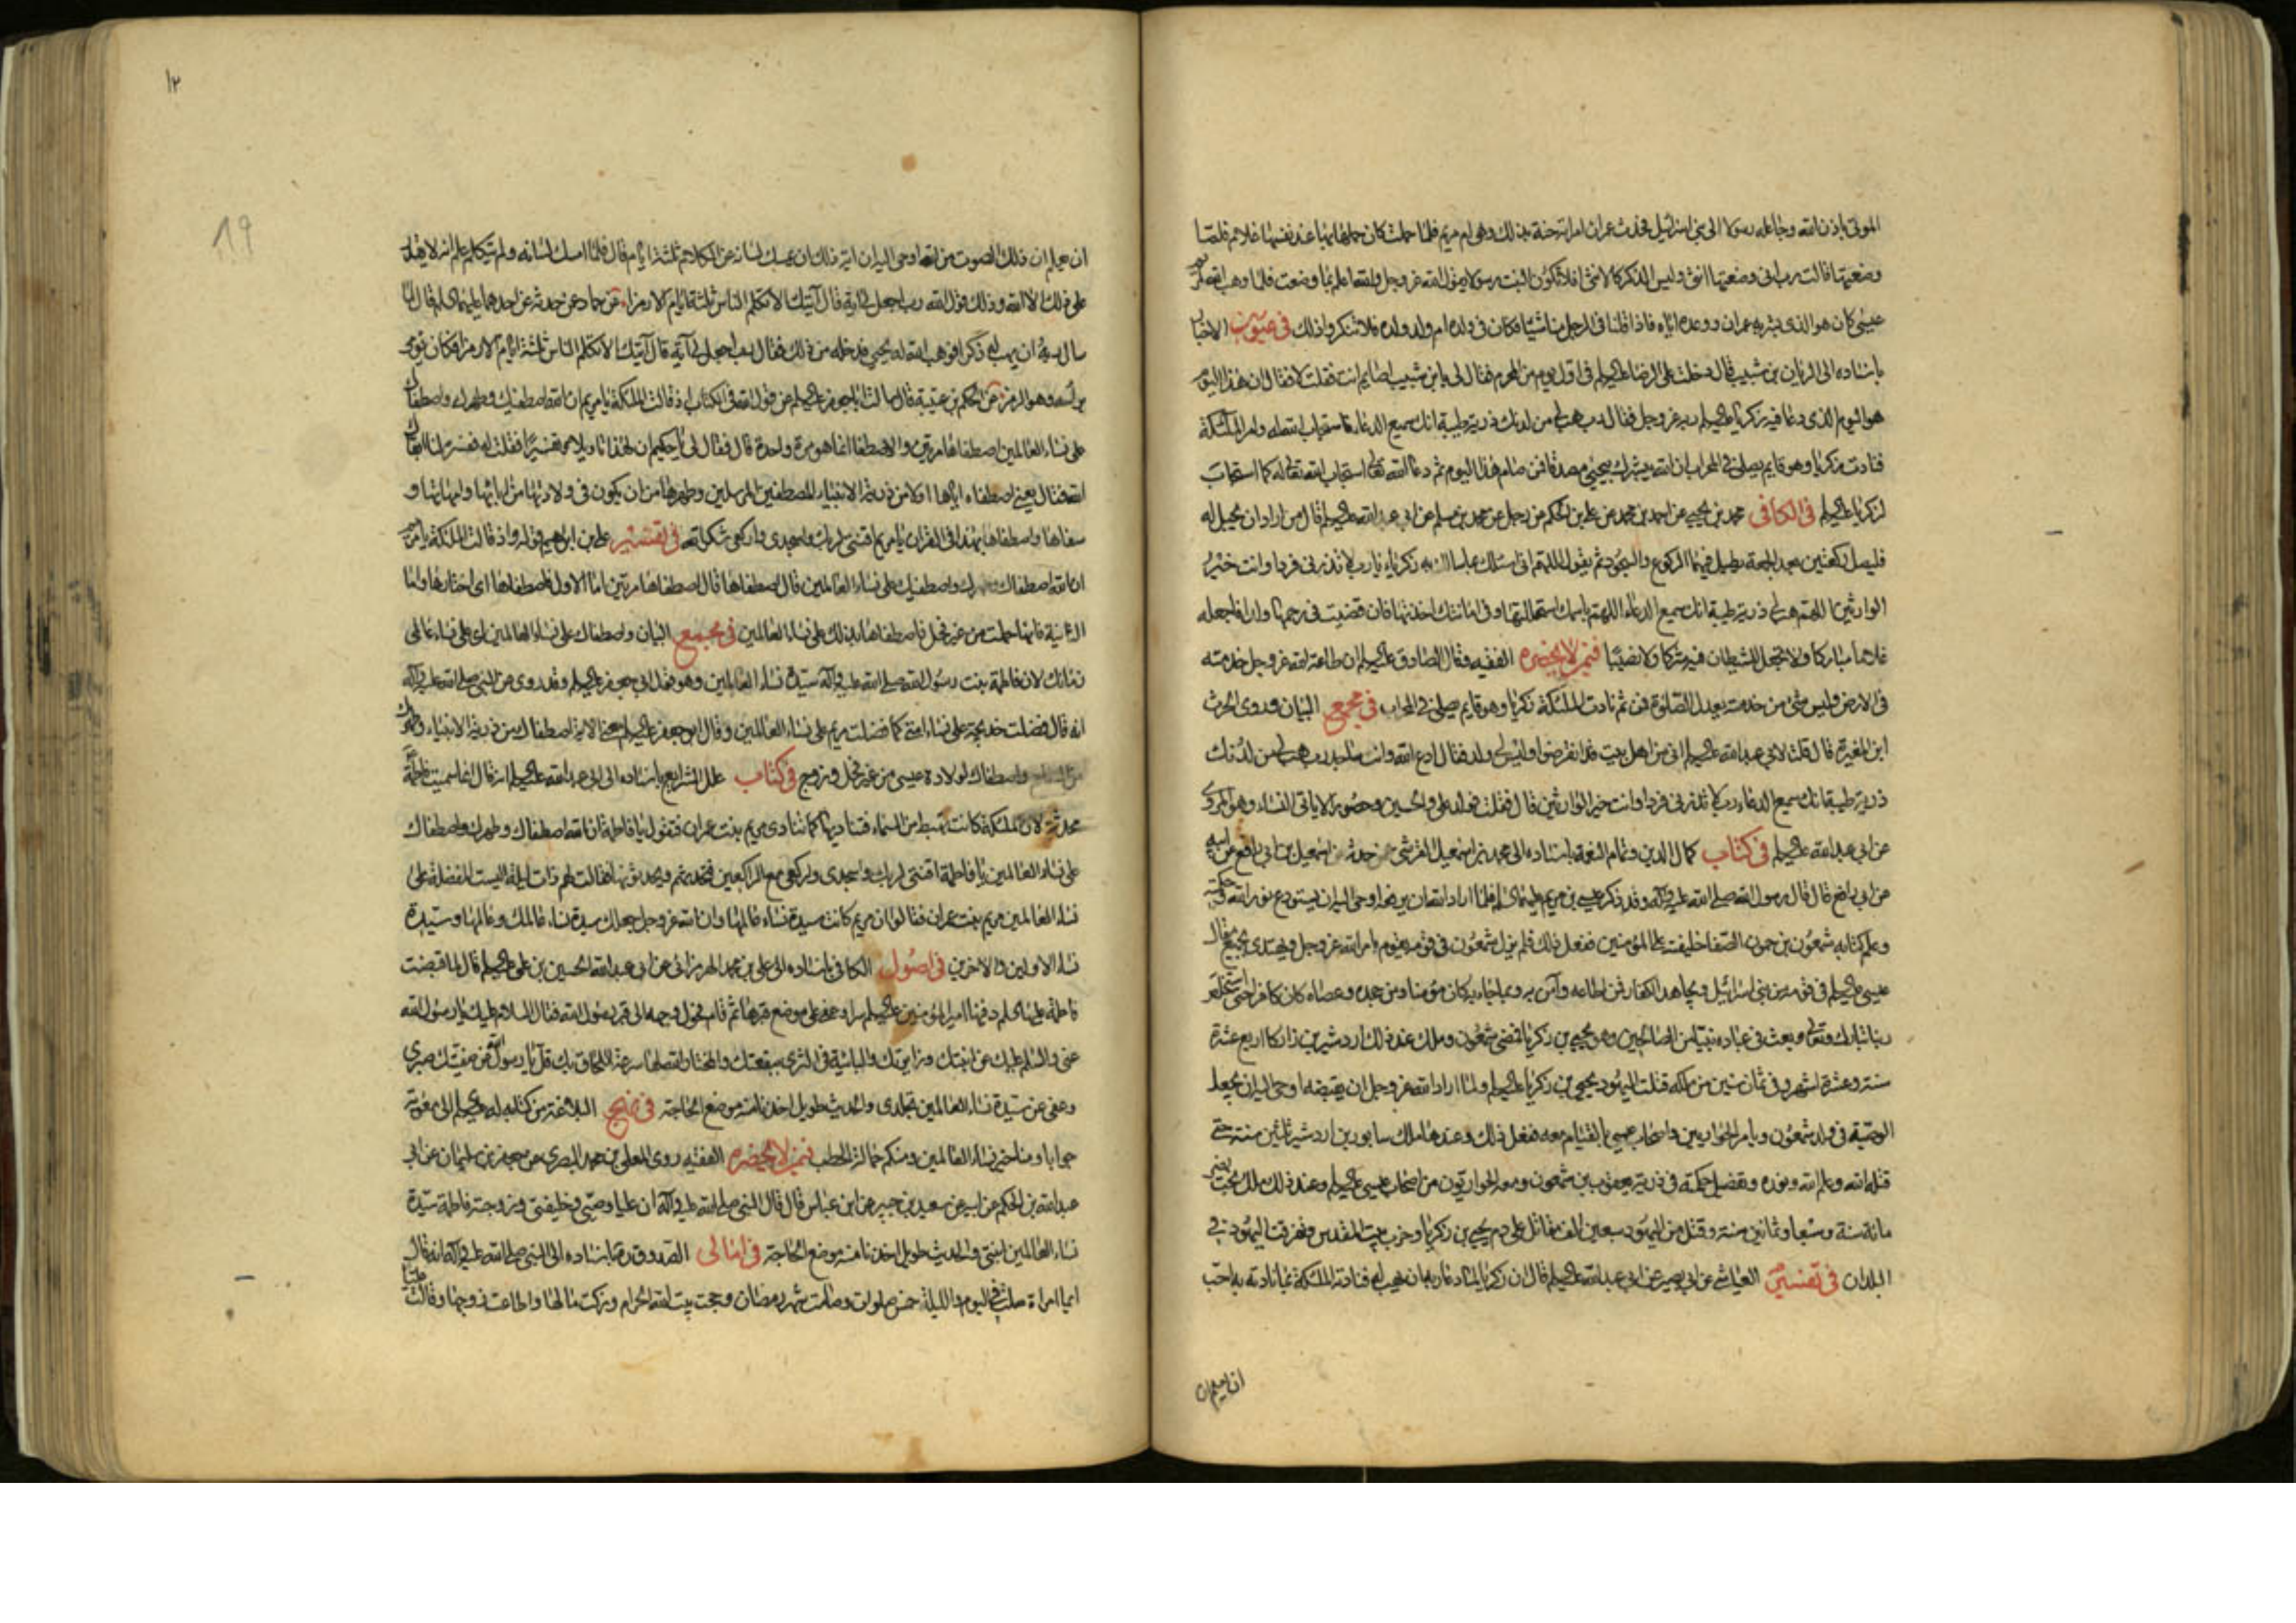 الموتى باذن الله وجاعله رسولا الى بنى اسرائيل فحدث عمران امراته حنة بذلك وهى ام مريم فلما حملت كان حملها بها عند نفسها غلام فلما
وضعتها قالت رب انى وضعتها انثى وليس الذكر كالانثى فلا تكون البنت رسولا يقول الله عز وجل والله اعلم بما وضعت فلما وهب الله لمريم
عيسى كان هو الذى بشر به عمران ووعده اياه فاذا قلنا فى الرجل منا شيئا فكان فى ولده او ولد ولده فلا تنكروا ذلك فى عيون الاخبار
باسناده الى الريان بن شبيب قال دخلت على الرضا عليه السلم فى اول يوم من المحرم فقال لى يابن شبيب اصايم انت فقلت لا فقال ان هذا اليوم
هو اليوم الذى دعا فيه زكريا عليه السلم ربه عز وجل فقال رب هب لى من لدنك ذرية طيبة انك سميع الدعاء فاستجاب الله له وامر الملئكة
فنادت زكريا وهو قايم يصلى فى المحراب ان الله يبشرك بيحيى مصدقا فمن صام هذا اليوم ثم دعا الله تعالى استجاب الله تعالى له كما استجاب
لزكريا عليه السلم فى الكافى محمد بن يحيى عن احمد بن محمد عن على بن الحكم عن رجل عن محمد بن مسلم عن ابى عبد الله عليه السلم قال من اراد ان يحبل له
فليصل ركعتين بعد الجمعة يطيل فيهما الركوع والسجود ثم يقول اللهم انى اسئلك بما سالك به زكرياء يا رب لا تذرنى فردا وانت خير
الوارثين اللهم هب لى ذرية طيبة انك سميع الدعاء اللهم باسمك استحللتها وفى امانتك اخذتها فان قضيت فى رحمها ولدا فاجعله
غلاما مباركا ولا تجعل للشيطان فيه شركا ولا نصيبا فيمن لا يحضره الفقيه وقال الصادق عليه السلم ان طاعة الله عز وجل خدمته
فى الارض وليس شىء من خدمته يعدل الصلوة فمن ثم نادت الملئكة زكريا وهو قايم يصلى فى المحراب فى مجمع البيان وروى الحرث
ابن المغيرة قال قلت لابى عبد الله عليه السلم انى من اهل بيت قد انقرضوا وليس لى ولد فقال ادع الله وانت ساجد رب هب لى من لدنك
ذرية طيبة انك سميع الدعاء رب لا تذرنى فردا وانت خير الوارثين قال ففعلت فولد على والحسين وحصورا لا ياتى النساء وهو المروى
عن ابى عبد الله عليه السلم فى كتاب كمال الدين وتمام النعمة باسناده الى محمد بن اسمعيل القرشى عمن حدثه عن اسمعيل بن ابى رافع عن ابيه
عن ابى رافع قال قال رسول الله صلى الله عليه وآله وقد ذكر عيسى بن مريم عليهما السلم فلما اراد الله ان يرفعه اوحى اليه ان يستودع نور الله وحكمته
وعلم كتابه شمعون بن حمون الصفا خليفته على المؤمنين ففعل ذلك فلم يزل شمعون فى قومه يقوم بامر الله عز وجل ويهتدى بجميع مقال
عيسى عليه السلم فى قومه من بنى اسرائيل ويجاهد الكفار فمن اطاعه وآمن به وبما جاء به كان مؤمنا ومن جحده وعصاه كان كافرا حتى استخلص
ربنا تبارك وتعالى وبعث فى عباده نبيا من الصالحين وهو يحيى بن زكريا فمضى شمعون وملك عند ذلك اردشير بن زاركا اربع عشرة
سنة وعشرة اشهر وفى ثمان سنين من ملكه قتلت اليهود يحيى بن زكريا عليه السلم ولما اراد الله عز وجل ان يقبضه اوحى اليه ان يجعل
الوصية فى ولد شمعون ويامر الحواريين واصحاب عيسى بالقيام معه ففعل ذلك وعندها ملك سابور بن اردشير ثلثين سنة حتى
قتله الله وعلم الله ونوره وتفصيل حكمته فى ذرية يعقوب بن شمعون ومعه الحواريون من اصحاب عيسى عليه السلم وعند ذلك ملك بخت نصر
مائة سنة وسبعا وثمانين سنة وقتل من اليهود سبعين الف مقاتل على دم يحيى بن زكريا وخرب بيت المقدس وتفرقت اليهود فى
البلدان فى تفسير العياشى عن ابى بصير عن ابى عبد الله عليه السلم قال ان زكريا لما دعا ربه ان يهب له فنادته الملئكة بما نادته به احب
ان يعلم ان
١٢
19
ان يعلم ان ذلك الصوت من الله اوحى اليه ان آية ذلك ان يمسك لسانه عن الكلام ثلثة ايام قال فلما امسك لسانه ولم يتكلم علم انه لا يقدر
على ذلك الا الله وذلك قول الله رب اجعل لى آية قال آيتك الا تكلم الناس ثلثة ايام الا رمزا عن حماد عمن حدثه عن احدهما عليهما السلم قال لما
سال ربه ان يهب له ذكرا فوهب الله له يحيى فدخله من ذلك فقال رب اجعل لى آية قال آيتك الا تكلم الناس ثلثة ايام الا رمزا فكان يؤمى
براسه وهو الرمز عن الحكم بن عتيبة قال سالت ابا جعفر عليه السلم عن قول الله فى الكتاب اذ قالت الملئكة يا مريم ان الله اصطفيك وطهرك واصطفاك
على نساء العالمين اصطفاها مرتين والاصطفا انما هو مرة واحدة قال فقال لى يا حكيم ان لهذا تاويلا وتفسيرا فقلت له فسره لنا ابقاك
الله فقال يعنى اصطفاه اياها اولا من ذرية الانبياء المصطفين المرسلين وطهرها من ان يكون فى ولادتها من ابائها وامهاتها و
سفاحا واصطفاها بهذا فى القران يا مريم اقنتى لربك واسجدى واركعى شكرا لله فى تفسير على بن ابراهيم قوله واذ قالت الملئكة يا مريم
ان الله اصطفاك وطهرك واصطفيك على نساء العالمين قال اصطفاها قال اصطفاها مرتين اما الاول فاصطفاها اى اختارها واما
الثانية فانها حملت من غير فحل فاصطفاها بذلك على نساء العالمين فى مجمع البيان واصطفاك على نساء العالمين اى على نساء عالمى
زمانك لان فاطمة بنت رسول الله صلى الله عليه وآله سيدة نساء العالمين وهو قول ابى جعفر عليه السلم وقد روى عن النبى صلى الله عليه وآله
انه قال فضلت خديجة على نساء امتى كما فضلت مريم على نساء العالمين وقال ابو جعفر عليه السلم معنى الاية اصطفاك من ذرية الانبياء وطهرك
من السفاح واصطفاك لولادة عيسى من غير فحل وزوج فى كتاب علل الشرايع باسناده الى ابى عبد الله عليه السلم انه قال انما سميت فاطمة
محدثة لان الملئكة كانت تهبط من السماء فتناديها كما تنادى مريم بنت عمران فتقول يا فاطمة ان الله اصطفاك وطهرك واصطفاك
على نساء العالمين يا فاطمة اقنتى لربك واسجدى واركعى مع الراكعين فتحدثهم ويحدثونها فقالت لهم ذات ليلة اليست المفضلة على
نساء العالمين مريم بنت عمران فقالوا ان مريم كانت سيدة نساء عالمها وان الله عز وجل جعلك سيدة نساء عالمك وعالمها وسيدة
نساء الاولين والاخرين فى اصول الكافى باسناده الى على بن محمد الهرمزانى عن ابى عبد الله الحسين بن على عليه السلم قال لما قبضت
فاطمة عليها السلم دفنها امير المؤمنين عليه السلم سرا وعفا على موضع قبرها ثم قام فحول وجهه الى قبر رسول الله فقال السلام عليك يا رسول الله
عنى والسلم عليك عن ابنتك وزايرتك والبائتة فى الثرى ببقعتك والمختار الله لها سرعة اللحاق بك قل يا رسول الله عن صفيتك صبرى
وعفى عن سيدة نساء العالمين تجلدى والحديث طويل اخذنا منه موضع الحاجة فى نهج البلاغة من كتاب له عليه السلم الى معوية
جوابا ومنا خير نساء العالمين ومنكم حمالة الحطب فيمن لا يحضره الفقيه روى المعلى بن محمد البصرى عن جعفر بن سليمان عن ابى
عبد الله بن الحكم عن ابيه عن سعيد بن جبير عن ابن عباس قال قال النبى صلى الله عليه وآله ان عليا وصيى وخليفتى وزوجته فاطمة سيدة
نساء العالمين ابنتى والحديث طويل اخذنا منه موضع الحاجة فى امالى الصدوق ره باسناده الى النبى صلى الله عليه وآله انه قال
ايما امراة صلت فى اليوم والليلة خمس صلوات وصامت شهر رمضان وحجت بيت الله الحرام وزكت مالها واطاعت زوجها ووالت عليا